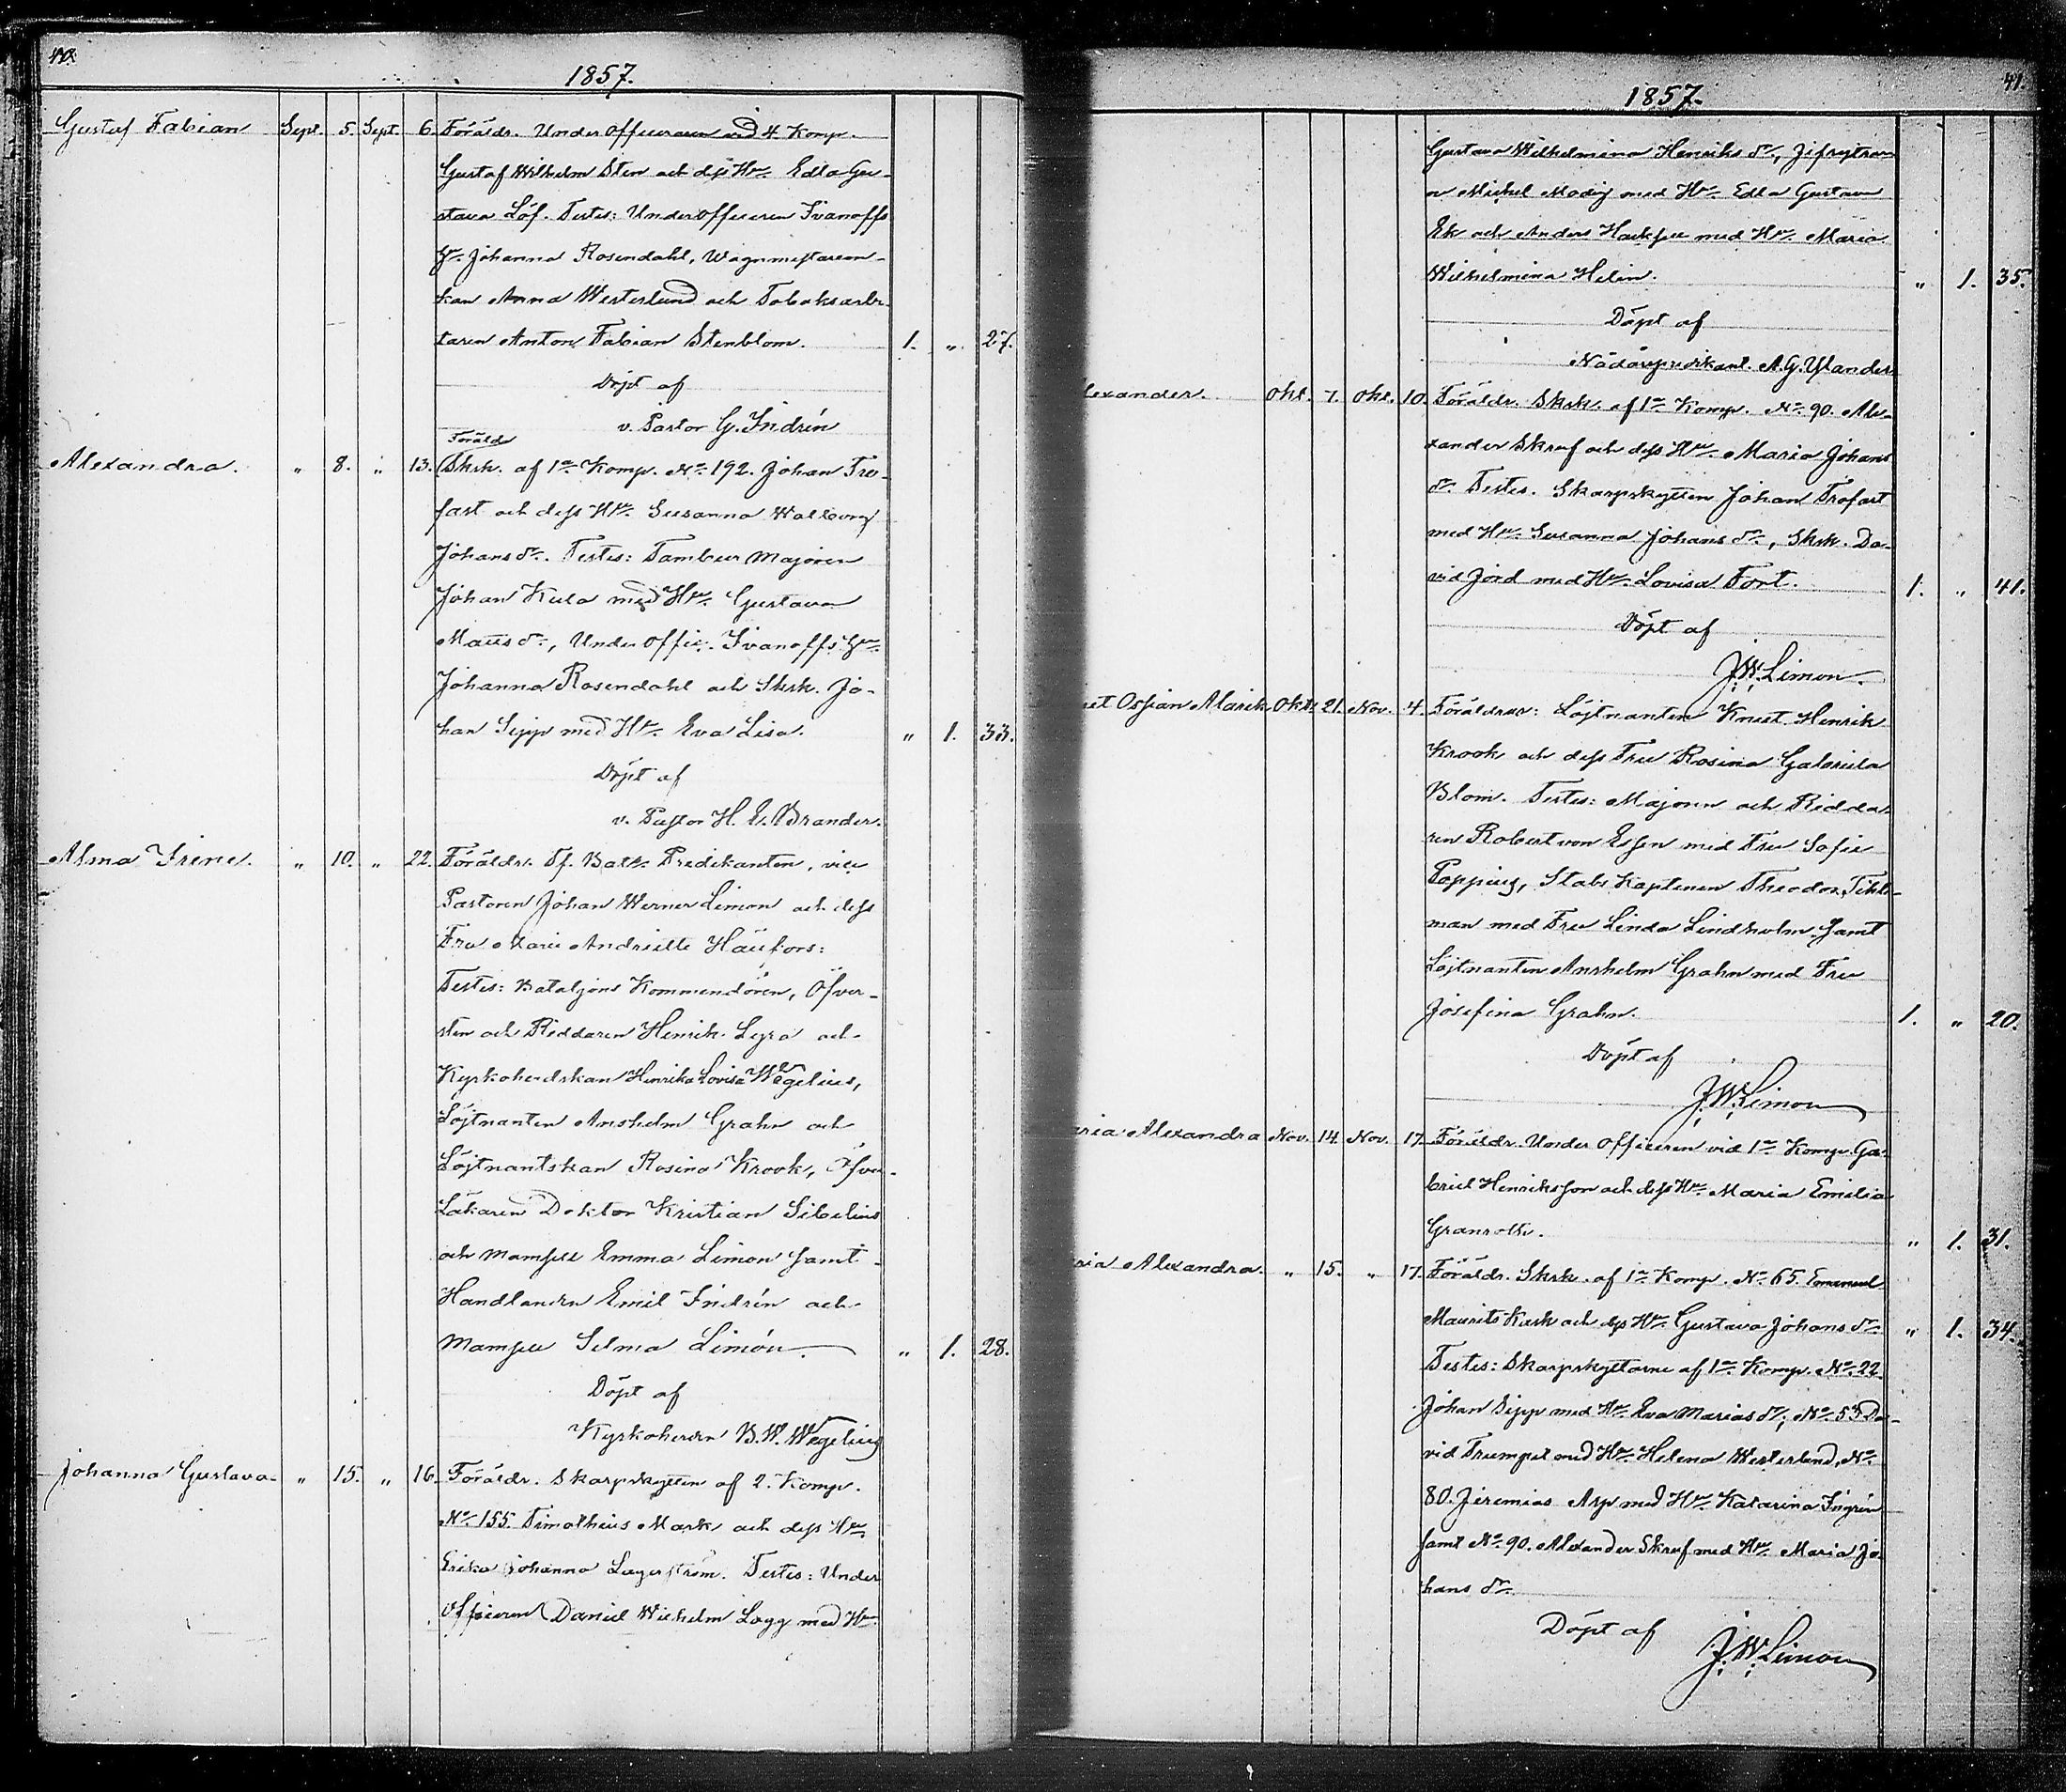 40.
1857.
Gustaf Fabian Sept. 5. Sept. 6. Föräldr. Under officeraren vid 4. Komp.
Gustaf Wilhelm Sten och dess Hu. Edla Gu-
stava Löf. Testes: Under officeren Ivanoffs
Hu. Johanna Rosendahl, Wagnmästarean-
kan Anna Westerlund och Tobaksarbe-
taren Anton Fabian Stenblom. 1. " 27.
Döpt af
v. Pastor G. Indrén
Föräld
Alexandra. " 8. " 13. Skrk. af 1a Komp. No 192. Johan Tro-
fast och dess Hu. Susanna Wallborg
Johans dr. Testes: Tambur Majoren
Johan Kula med Hu. Gustava
Matts dr, Under offic. Ivanoffs Hu.
Johanna Rosendahl och Skrk. Jo-
han Sipp med Hu. Eva Lisa. " 1. 33.
Döpt af
v. Pastor H. E. Brander.
Alma Irene. " 10. " 22. Föräldr. Tf. Bat. Predikanten, vice
Pastoren Johan Werner Limon och dess
Fru Marie Andriette Häufors:
Testes: Bataljons Kommendören, Öfver-
sten och Riddaren Henrik Lyra och
Kyrkoherdskan Henrika Lovisa Wegelius,
Löjtnanten Anshelm Grahn och
Löjtnantskan Rosina Krook, Öfver-
Läkaren Doktor Kristian Sibelius
och Mamsell Emma Limon samt
Handlanden Emil Indrén och
Mamsell Selma Limón. " 1. 28.
Döpt af
Kyrkoherden B. W. Wegelius
Johanna Gustava " 15. " 16. Föräldr. Skarpskytten af 2. Komp.
No 155. Timotheus Mark och dess Hu.
Erika Johanna Lagerström. Testes: Under
officeren Daniel Wilhelm Lagg med Hu.
41.
1857.
Gustava Wilhelmina Henriks dr,
Mickel Modig med Hu. Edla Gustava
Ek och Anders Hack med Hu. Maria
Wilhelmina Helin. " 1. 35.
Döpt af
Nådårspredikant. A. G. Ylander
lexander. Okt. 7. Okt. 10. Föräldr. Skrk. af 1a Komp. No 90. Ale-
xander Skruf och dess Hu. Maria Johans
dr. Testes. Skarpskytten Johan Trofast
med Hu. Susanna Johans dr, Skrk. Da-
vid Jord med Hu. Lovisa Fort. 1. " 41.
Döpt af
J. W. Limon.
Ossian Alarik. Okt. 21. Nov. 4. Föräldrar: Löjtnanten Knut Henrik
Krook och dess Fru Rosina Gabriela
Blom. Testes: Majoren och Ridda-
ren Robert von Essen med Fru Sofie
Poppius, Stabs Kaptenen Theodor Tihle-
man med Fru Linda Lindholm samt
Löjtnanten Anshelm Grahn med Fru
Josefina Grahn. 1. " 20.
Döpt af
J. W. Limon
aria Alexandra Nov. 14. Nov. 17. Föräldr. Under officeren vid 1a Komp. Ga-
briel Henriksson och dess Hu. Maria Emilia
Granroth. " 1. 31.
ria Alexandra. " 15. " 17. Föräldr. Skrk. af 1a Komp. No 65. Emanuel
Maurits Kask och dess Hu. Gustava Johans dr. " 1. 34.
Testes: Skarpskyttarne af 1a Komp. No 22.
Johan Sipp med Hu. Eva Marias dr, No 53 Da-
vid Trumpet med Hu. Helena Westerlund, No
80. Jeremias Asp med Hu. Katarina Ingrén
samt No 90. Alexander Skruf med Hu. Maria Jo-
hans dr.
Döpt af
J. W. Limon